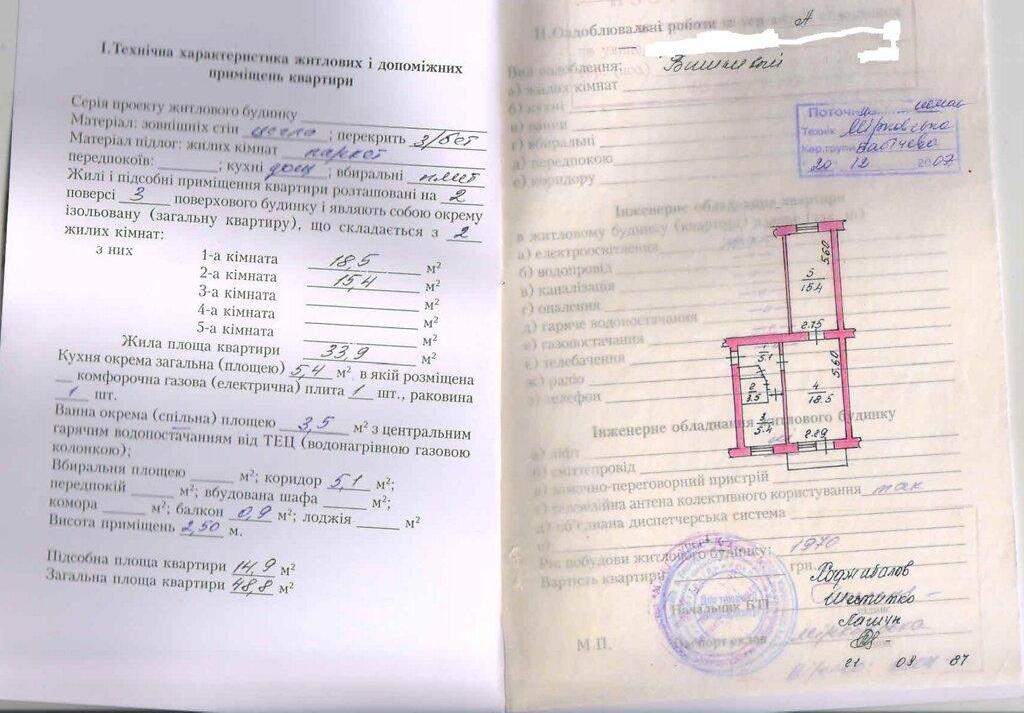 I. Технічна характеристика житлових і допоміжних
приміщень квартири
Серія проекту житлового будинку
Матеріал: зовнішніх стін цегла ; перекрить з/бет
Матеріал підлог: жилих кімнат паркет
передпокоїв: ; кухні дощ ; вбиральні плит
Жилі і підсобні приміщення квартири розташовані на 2
поверсі 3 поверхового будинку і являють собою окрему
ізольовану (загальну квартиру), що складається з 2
жилих кімнат:
з них 1-а кімната 18,5 м²
2-а кімната 15,4 м²
3-а кімната м²
4-а кімната м²
5-а кімната м²
Жила площа квартири 33,9 м²
Кухня окрема загальна (площею) 5,4 м², в якій розміщена
комфорочна газова (електрична) плита 1 шт., раковина
1 шт.
Ванна окрема (спільна) площею 3,5 м² з центральним
гарячим водопостачанням від ТЕЦ (водонагрівною газовою
колонкою);
Вбиральня площею м²; коридор 5,1 м²;
передпокій м²; вбудована шафа м²;
комора м²; балкон 0,9 м²; лоджія м²
Висота приміщень 2,50 м.
Підсобна площа квартири 14,9 м²
Загальна площа квартири 48,8 м²
II. Оздоблювальні роботи
А
Вид оздоблення:
а) жилих кімнат
б) кухні
в) ванни
г) вбиральні
д) передпокою
е) коридору
Поточні
Технік Мірковська
Кер. групи
20. 12 2007
Інженерне обладнання квартири
в житловому будинку (квартирі)
а) електроосвітлення
б) водопровід
в) каналізація
г) опалення
д) гаряче водопостачання
е) газопостачання
є) телебачення
ж) радіо
з) телефон
5.60
5
15.4
2.75
1
5.1
5.60
2
3.5
4
18.5
3
5.4
2.29
Інженерне обладнання житлового будинку
а) ліфт
б) сміттєпровід
в) замочно-переговорний пристрій
г) телевізійна антена колективного користування так
д) об'єднана диспетчерська система
е)
Рік побудови житлового будинку: 1970
Вартість квартири грн.
Ходжибалов
Шеститко
Начальник БТІ
Лашун
М.П. Паспорт склав
21 08 87